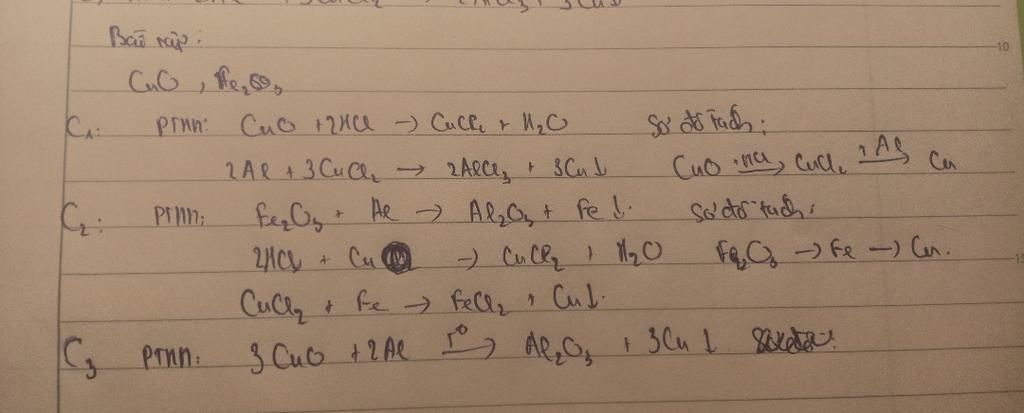 2AlCl₃ + 3Cu↓
Bài tập:
CuO, Fe₂O₃
C₁: PTPP: CuO + 2HCl → CuCl₂ + H₂O Sơ đồ tách:
2Al + 3CuCl₂ → 2AlCl₃ + 3Cu↓ CuO +HCl→ CuCl₂ +Al→ Cu
C₂: PTPP: Fe₂O₃ + Al → Al₂O₃ + Fe↓. Sơ đồ tách:
2HCl + Cu → CuCl₂ + H₂O Fe₂O₃ → Fe → Cu.
CuCl₂ + Fe → FeCl₂ + Cu↓.
C₃ PTPP: 3CuO + 2Al T⁰→ Al₂O₃ + 3Cu↓